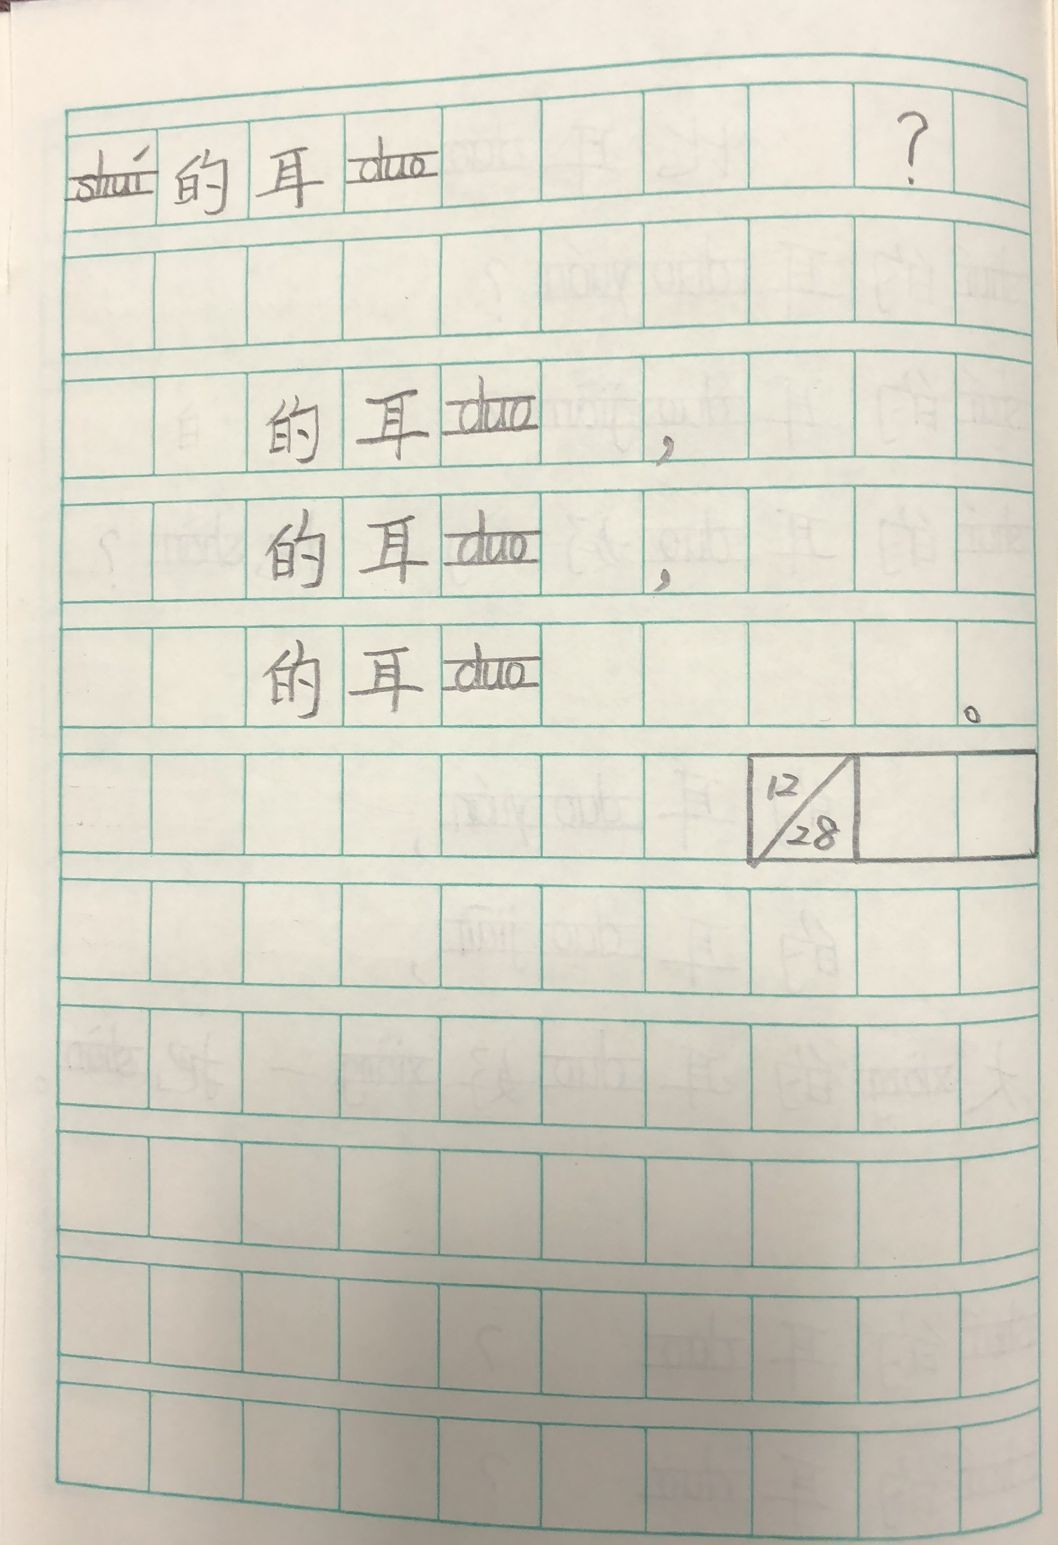 shuí的耳duo ?
的耳duo ,
的耳duo ,
的耳duo 。
12/28